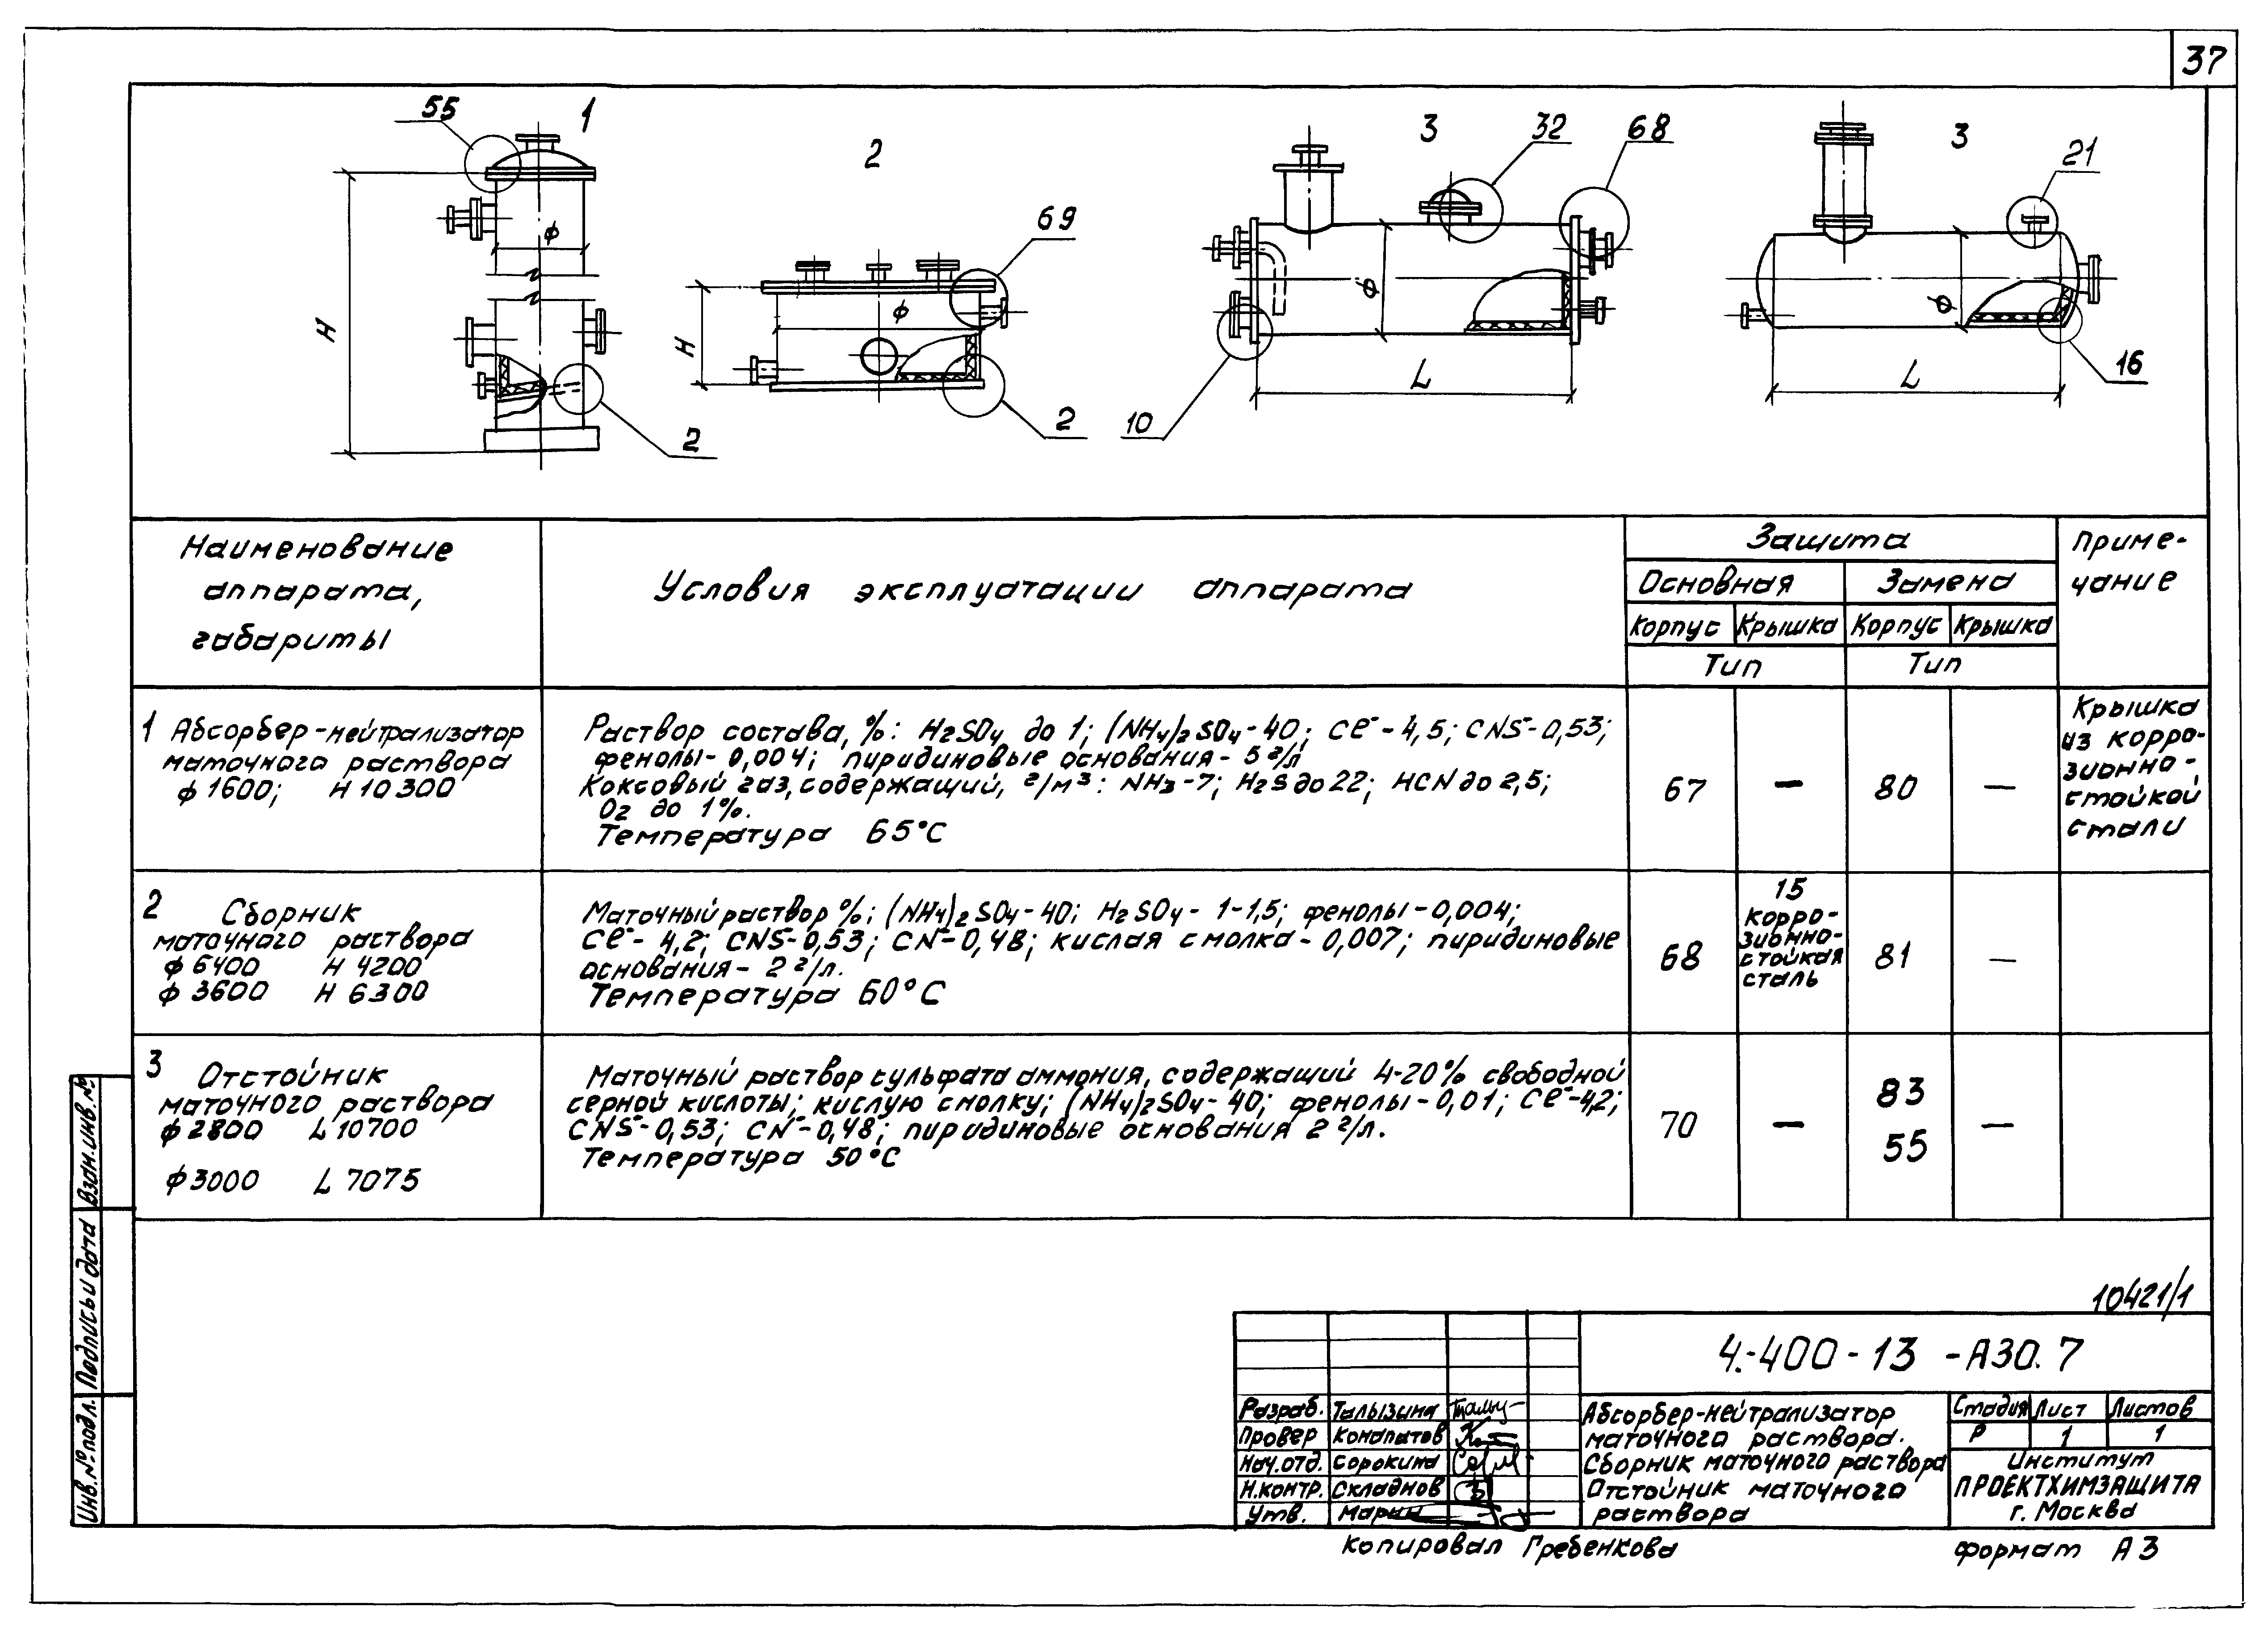 37
55
1
H
ϕ
2
2
69
H
ϕ
2
3
32
68
ϕ
L
10
3
21
ϕ
L
16
Наименование
аппарата,
габариты
Условия эксплуатации аппарата
Защита
Основная
Замена
Корпус
Крышка
Корпус
Крышка
Тип
Тип
Приме-
чание
1 Абсорбер-нейтрализатор
маточного раствора
ϕ 1600; H 10 300
Раствор состава, %: H₂SO₄ до 1; (NH₄)₂SO₄-40; Cl⁻- 4,5; CNS⁻-0,53;
фенолы- 0,004; пиридиновые основания - 5 г/л
Коксовый газ, содержащий, г/м³: NH₃-7; H₂S до 22; HCN до 2,5;
O₂ до 1%.
Температура 65°C
67
—
80
—
Крышка
из корро-
зионно-
стойкой
стали
2 Сборник
маточного раствора
ϕ 6400 H 4200
ϕ 3600 H 6300
Маточный раствор %; (NH₄)₂SO₄-40; H₂SO₄- 1-1,5; фенолы-0,004;
Cl⁻- 4,2; CNS⁻-0,53; CN⁻-0,48; кислая смолка - 0,007; пиридиновые
основания- 2 г/л.
Температура 60°C
68
15
корро-
зионно-
стойкая
сталь
81
—
3 Отстойник
маточного раствора
ϕ 2800 L 10700
ϕ 3000 L 7075
Маточный раствор сульфата аммония, содержащий 4-20% свободной
серной кислоты; кислую смолку; (NH₄)₂SO₄- 40; фенолы-0,01; Cl⁻-4,2;
CNS⁻-0,53; CN⁻-0,48; пиридиновые основания 2 г/л.
Температура 50°C
70
—
83
55
—
Взам.инв.№
Подпись и дата
Инв.№ подл.
10421/1
4.-400-13 -А30.7
Разраб. Талызина
Провер Конопатов
Нач.отд. Сорокина
Н.контр. Складнов
Утв. Марин
Абсорбер-нейтрализатор
маточного раствора.
Сборник маточного раствора
Отстойник маточного
раствора
Стадия Лист Листов
Р 1 1
Институт
ПРОЕКТХИМЗАЩИТА
г. Москва
Копировал Гребенкова
формат А3